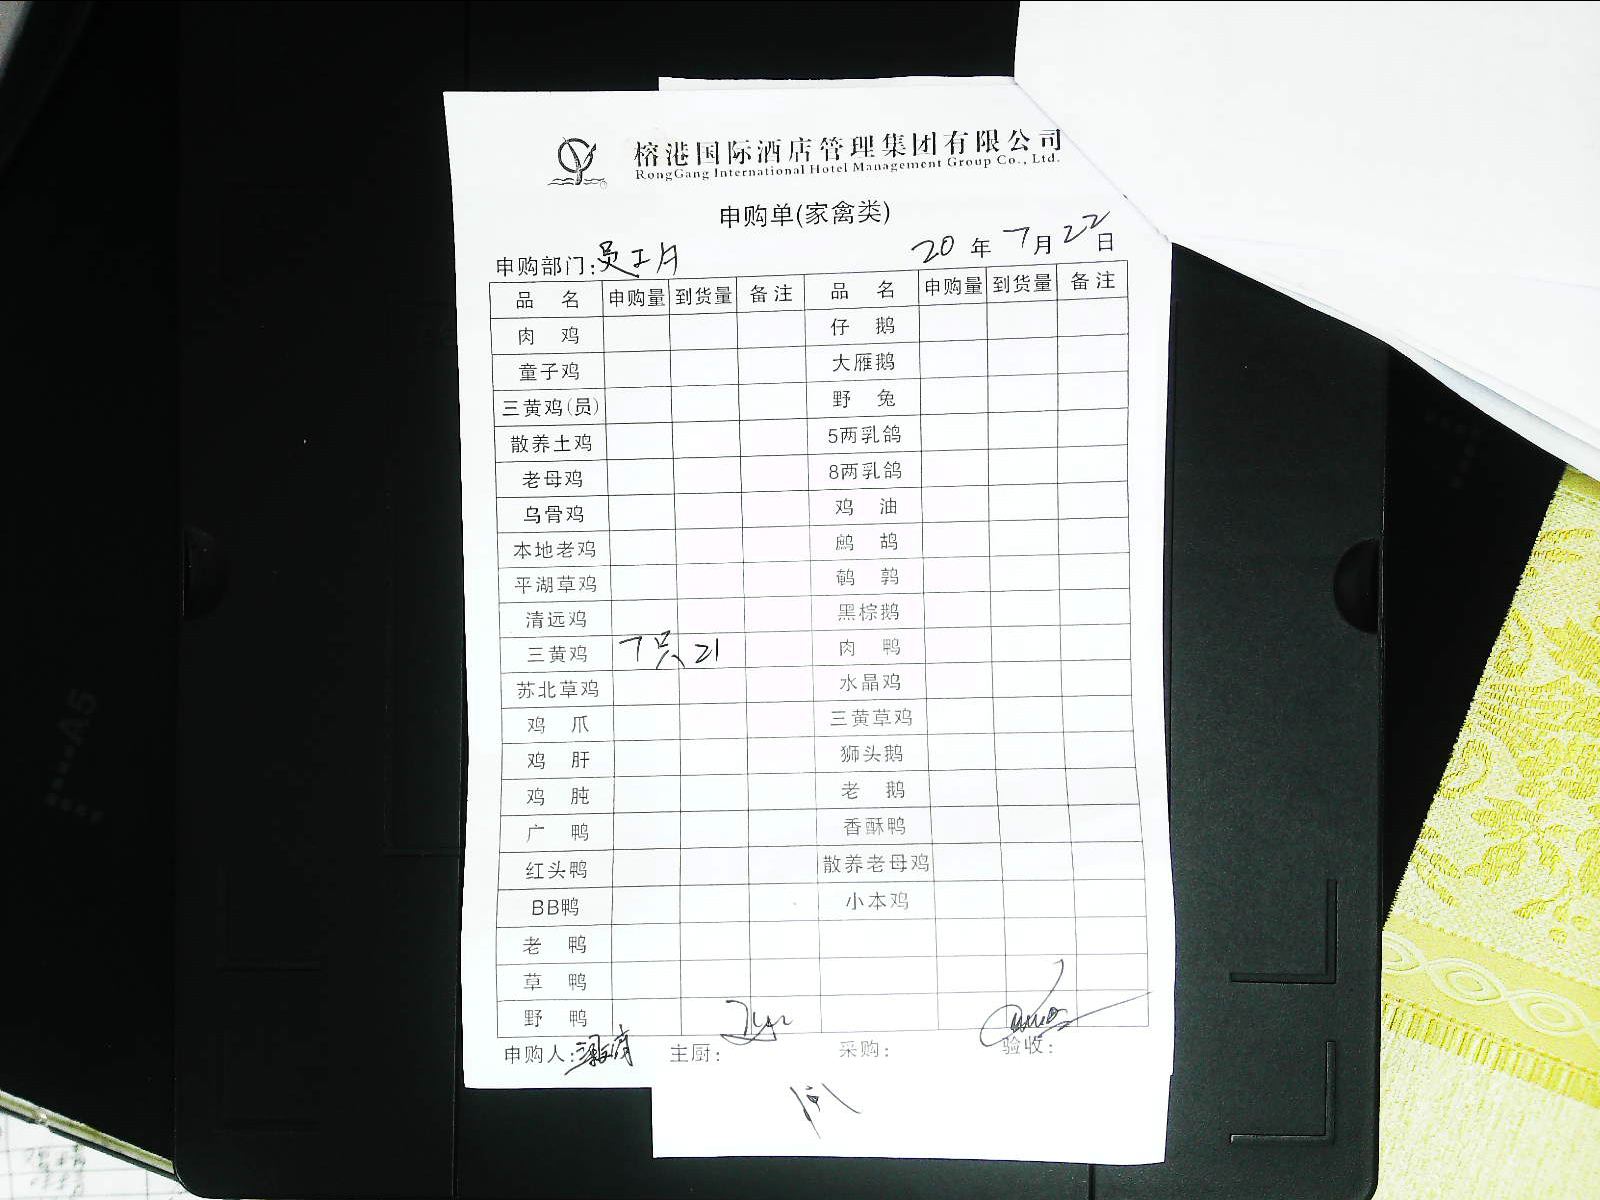 榕港国际酒店管理集团有限公司
RongGang International Hotel Management Group Co., Ltd.
申购单(家禽类)
申购部门: 员工 20年7月22日
品名 申购量 到货量 备注 品名 申购量 到货量 备注
肉鸡 仔鹅
童子鸡 大雁鹅
三黄鸡(员) 野兔
散养土鸡 5两乳鸽
老母鸡 8两乳鸽
乌骨鸡 鸡油
本地老鸡 鹧鸪
平湖草鸡 鹌鹑
清远鸡 黑棕鹅
三黄鸡 7只 21 肉鸭
苏北草鸡 水晶鸡
鸡爪 三黄草鸡
鸡肝 狮头鹅
鸡肫 老鹅
广鸭 香酥鸭
红头鸭 散养老母鸡
BB鸭 小本鸡
老鸭
草鸭
野鸭
申购人: 主厨: 采购: 验收:
A5